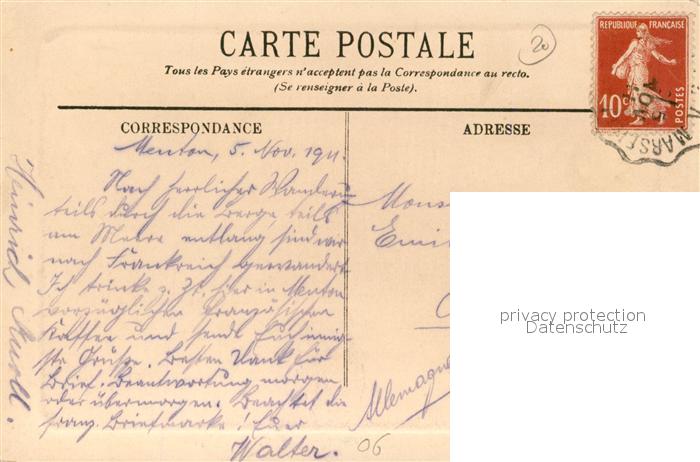 CARTE POSTALE
20
Tous les Pays étrangers n'acceptent pas la Correspondance au recto.
(Se renseigner à la Poste).
REPUBLIQUE FRANÇAISE
10c
POSTES
MARSE
CORRESPONDANCE
ADRESSE
Menton, 5. Nov. 1911.
Nach herrlicher Wanderu-
teils durch die Berge, teils
am Meere entlang sind wir
nach Frankreich gewandert.
Ich trinke z. Zt. hier in Menton
vorzüglichen französischen
Kaffee und sende Euch innig-
ste Grüße. Besten Dank für
Brief. Beantwortung morgen
oder übermorgen. Beachtet die
franz. Briefmarke! Euer
Walter.
Heinrich
Mons
Emi
Allemagne
06
privacy protection
Datenschutz